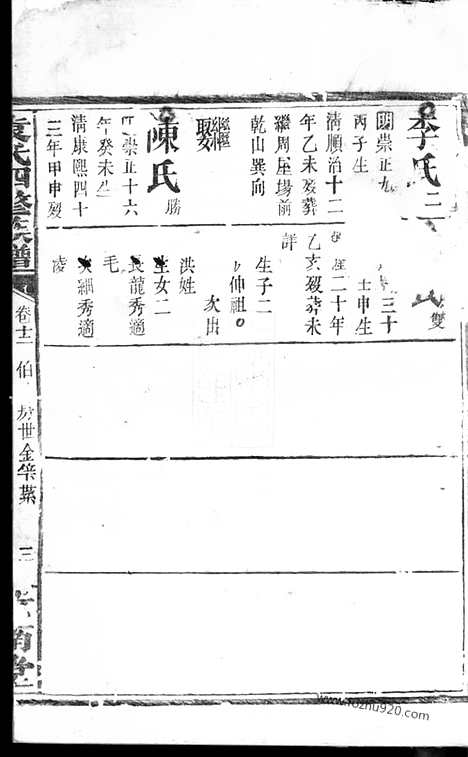 李氏 三
明崇正九
丙子生
清順治十二
年乙未歿葬
繼周屋場前
乾山巽向
繼娶
陳氏 勝
崇正十六
年癸未生
清康熙四十
三年甲申歿
雙
三十
壬申生
二十年
乙亥歿葬未
詳
生子二
伸祖
次出
洪姓
生女二
長龍秀適
毛
次細秀適
凌
袁氏四修族譜
卷十二
伯
世金榮
三
www.fozhu920.com